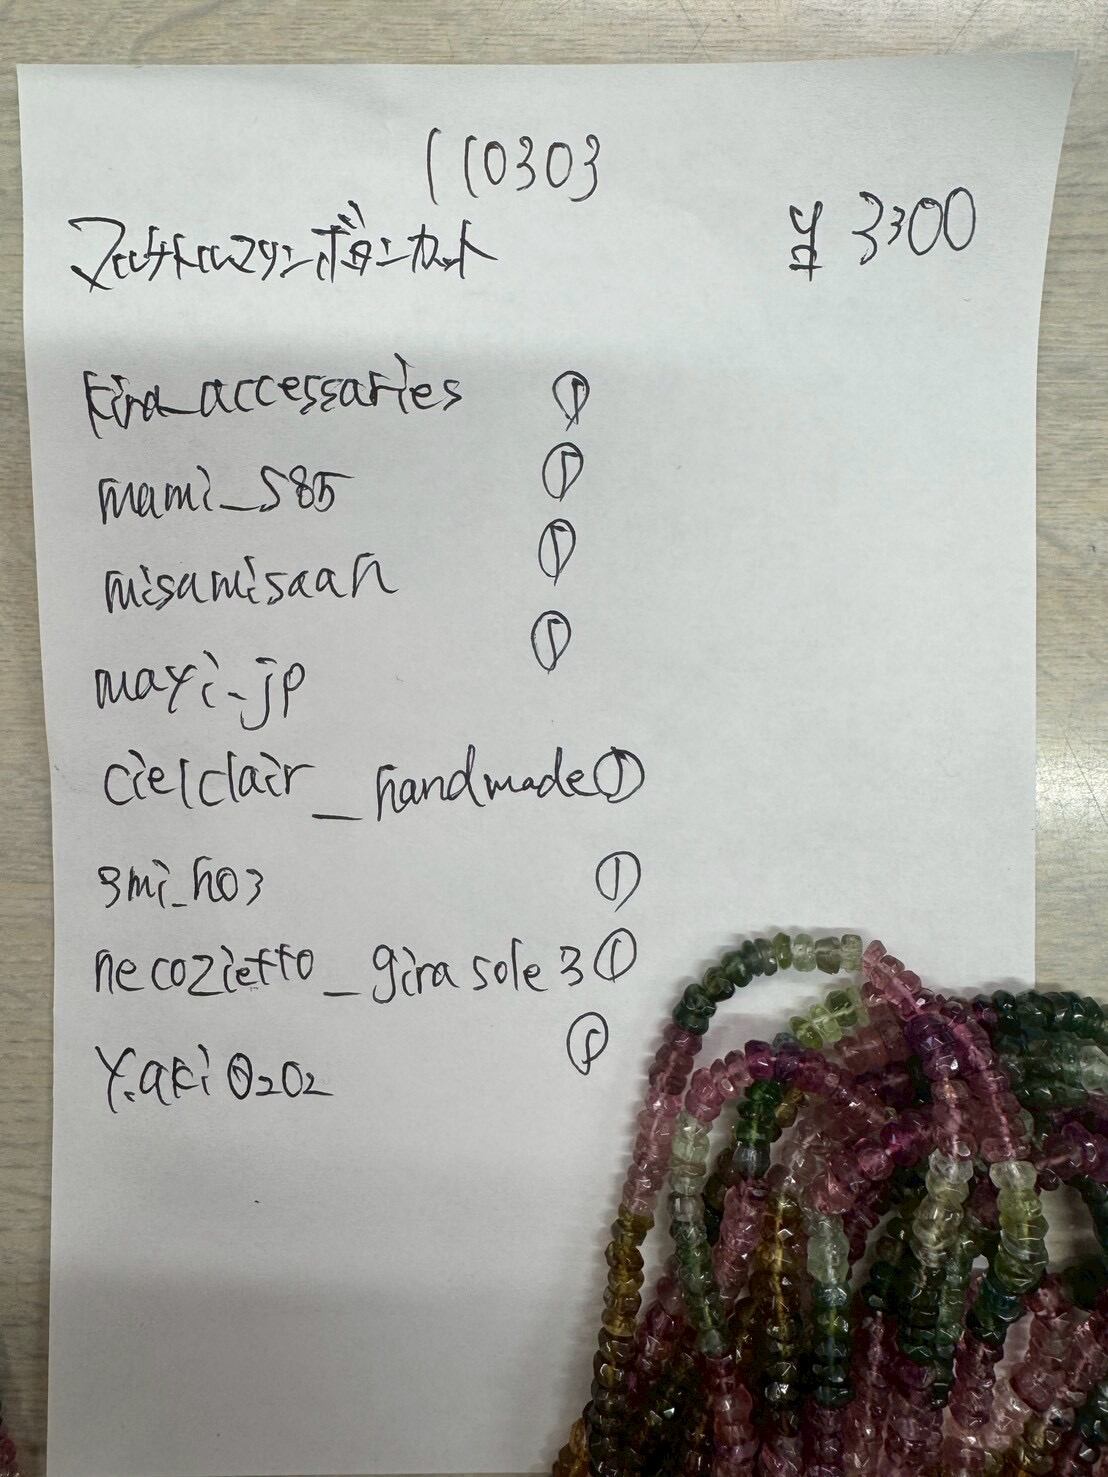 110303
マルチトルマリンボタンカット ¥3300
kira_accessaries ①
mami_S85 ①
misamisaan ①
mayi_jp ①
cielclair_handmade ①
smi_h03 ①
necozietto_girasole3 ①
Y.aki0202 ①